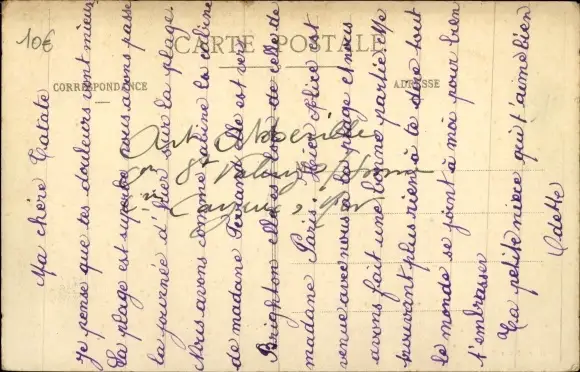 10€
CARTE POSTALE
CORRESPONDANCE
ADRESSE
Ma chère Tatate
Je pense que tes douleurs vont mieux
La plage est superbe nous avons passé
la journée d'hier sur la plage.
Nous avons comme cabine la cabine
de madame elle est vers
Brighton elle est loin de celle de
madame Paris. Alice est
venue avec nous à la plage et nous
avons fait une bonne partie elle
pouvant plus rien à te dire tout
le monde se joint à moi pour bien
t'embrasser
Ta petite nièce qui t'aime bien
Odette
Abbeville
St Valery s/Somme
Cayeux s/Mer